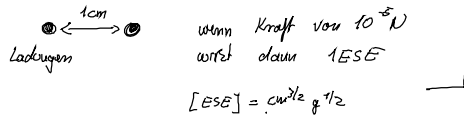 1cm
Ladungen
wenn Kraft von 10⁻⁵N
wirkt dann 1ESE
[ESE] = cm^3/2 g^1/2